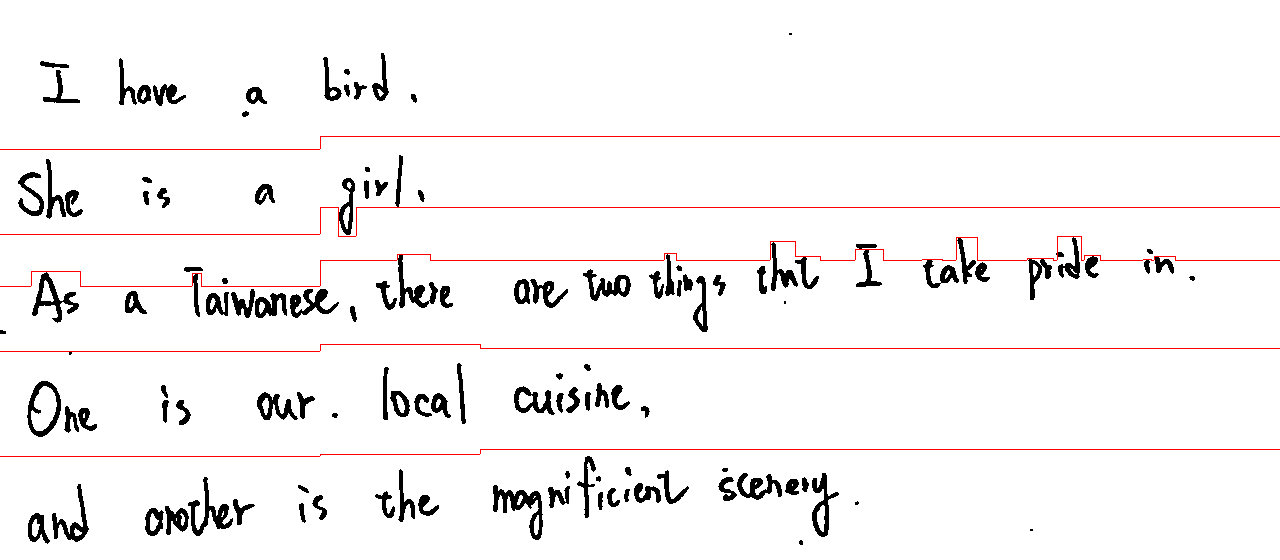 I have a bird.
She is a girl.
As a Taiwanese, there are two things that I take pride in.
One is our. local cuisine,
and another is the magnificient scenery.